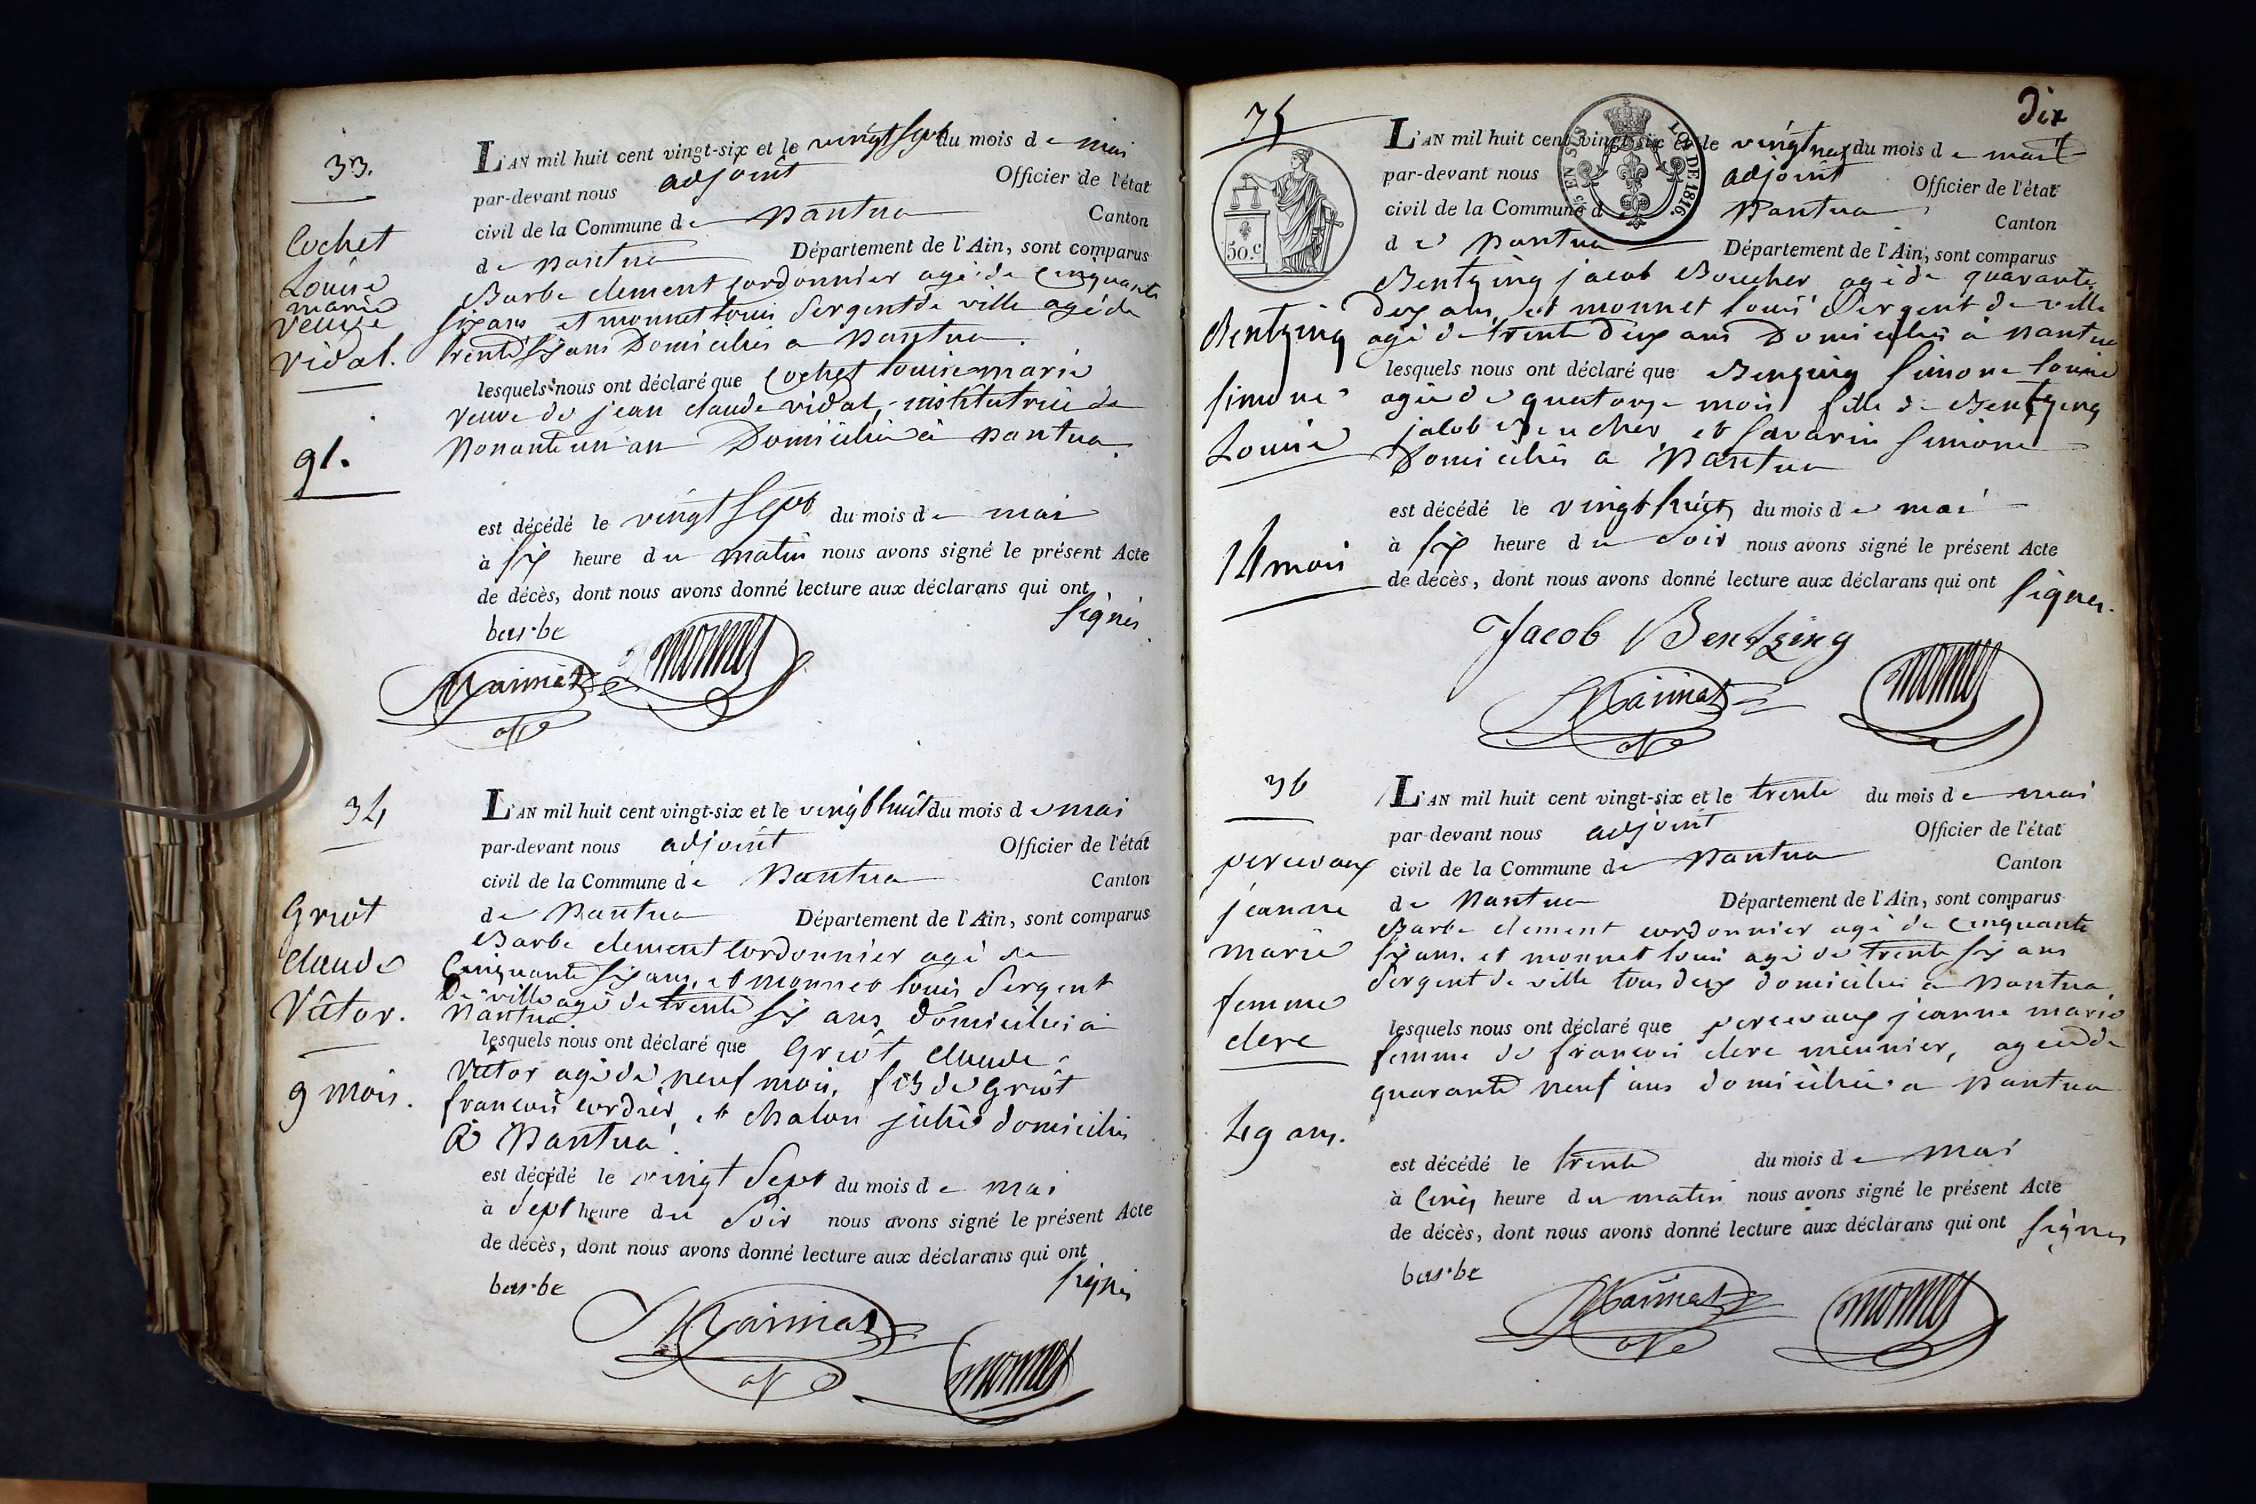 33.
Cochet
Louise
marie
veuve
vidal.
91.
L'AN mil huit cent vingt-six et le vingt sept du mois de mai
par-devant nous adjoint Officier de l'état
civil de la Commune de Nantua Canton
de Nantua Département de l'Ain, sont comparus
Barbe clement cordonnier agé de cinquante
six ans et monnet louis Sergent de ville agé de
trente six ans Domiciliés a Nantua.
lesquels nous ont déclaré que Cochet louise marie
veuve de jean claude vidal, institutrice de
Nonante un an Domiciliée à Nantua.
est décédé le vingt sept du mois de mai
à six heure du matin nous avons signé le présent Acte
de décès, dont nous avons donné lecture aux déclarans qui ont
signés.
barbe
monnet
34
Griot
claude
Victor.
9 mois.
L'AN mil huit cent vingt-six et le vingt huit du mois de mai
par-devant nous adjoint Officier de l'état
civil de la Commune de Nantua Canton
de Nantua Département de l'Ain, sont comparus
Barbe clement Cordonnier agé de
Cinquante six ans, et monnet louis Sergent
De ville agé de trente six ans domiciliés à
Nantua
lesquels nous ont déclaré que Griot claude
Victor agé de neuf mois, fils de Griot
francois cordier, et chalon julie domiciliés
à Nantua.
est décédé le vingt Sept du mois de mai
à Sept heure du Soir nous avons signé le présent Acte
de décès, dont nous avons donné lecture aux déclarans qui ont
signés
barbe
monnet
Dix
35
50.c
LOI DE 1816.
Bentzing
simone
Louise
14 mois
L'AN mil huit cent vingt-six et le vingt neuf du mois de mai
par-devant nous adjoint Officier de l'état
civil de la Commune de Nantua Canton
de Nantua Département de l'Ain, sont comparus
Bentzing jacob Boucher agé de quarante
deux ans, et monnet louis Sergent de ville
agé de trente deux ans Domiciliés à Nantua
lesquels nous ont déclaré que Benzing Simone louise
agée de quatorze mois fille de Bentzing
jacob Boucher et Savarin Simone
Domiciliés a Nantua
est décédé le vingt huit du mois de mai
à six heure du Soir nous avons signé le présent Acte
de décès, dont nous avons donné lecture aux déclarans qui ont signés.
Jacob Bentzing
monnet
36
percevaux
jeanne
marie
femme
clerc
49 ans.
L'AN mil huit cent vingt-six et le trente du mois de mai
par-devant nous adjoint Officier de l'état
civil de la Commune de Nantua Canton
de Nantua Département de l'Ain, sont comparus
Barbe clement cordonnier agé de cinquante
six ans. et monnet louis agé de trente six ans
Sergent de ville tous deux domiciliés a Nantua
lesquels nous ont déclaré que percevaux jeanne marie
femme de francois clerc meunier, agée de
quarante neuf ans domiciliée a Nantua
est décédé le trente du mois de mai
à Cinq heure du matin nous avons signé le présent Acte
de décès, dont nous avons donné lecture aux déclarans qui ont signés
barbe
monnet